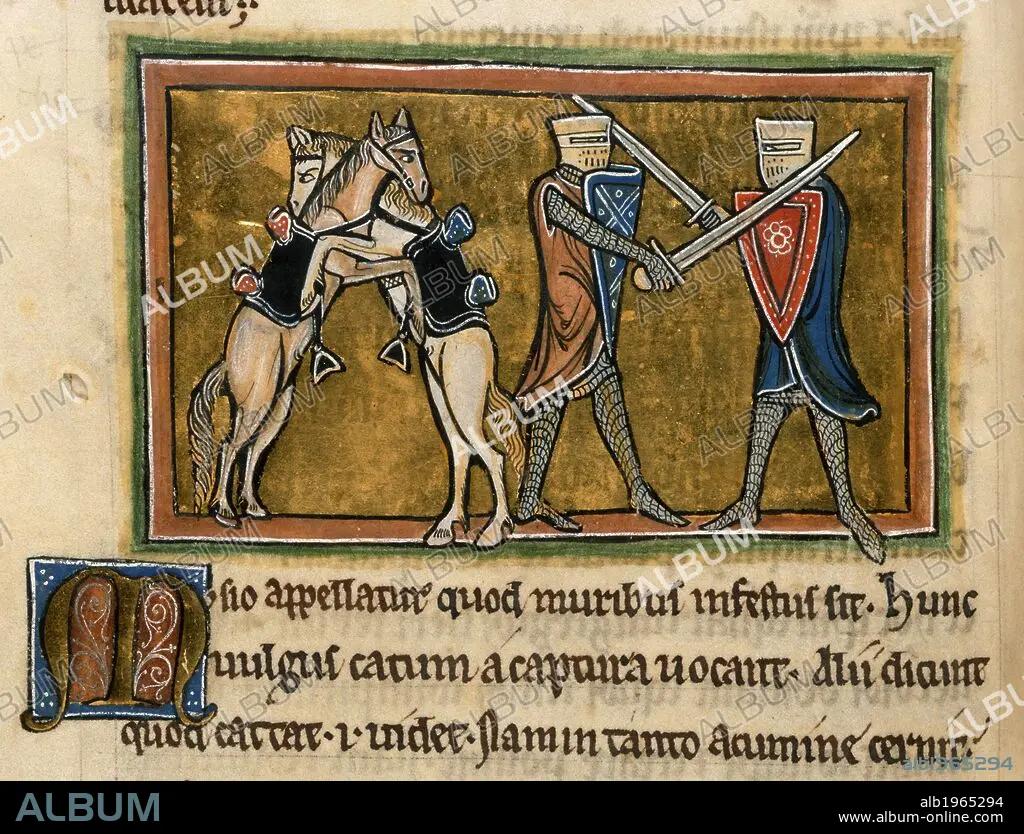 Musio appellatur quod muribus infestus sit. Hunc
uulgus catum a captura uocant. Alii dicunt
quod cattat .i. uidet. Nam in tanto acumine cernit
alb1965294
ALBUM
alb1965294
www.album-online.com